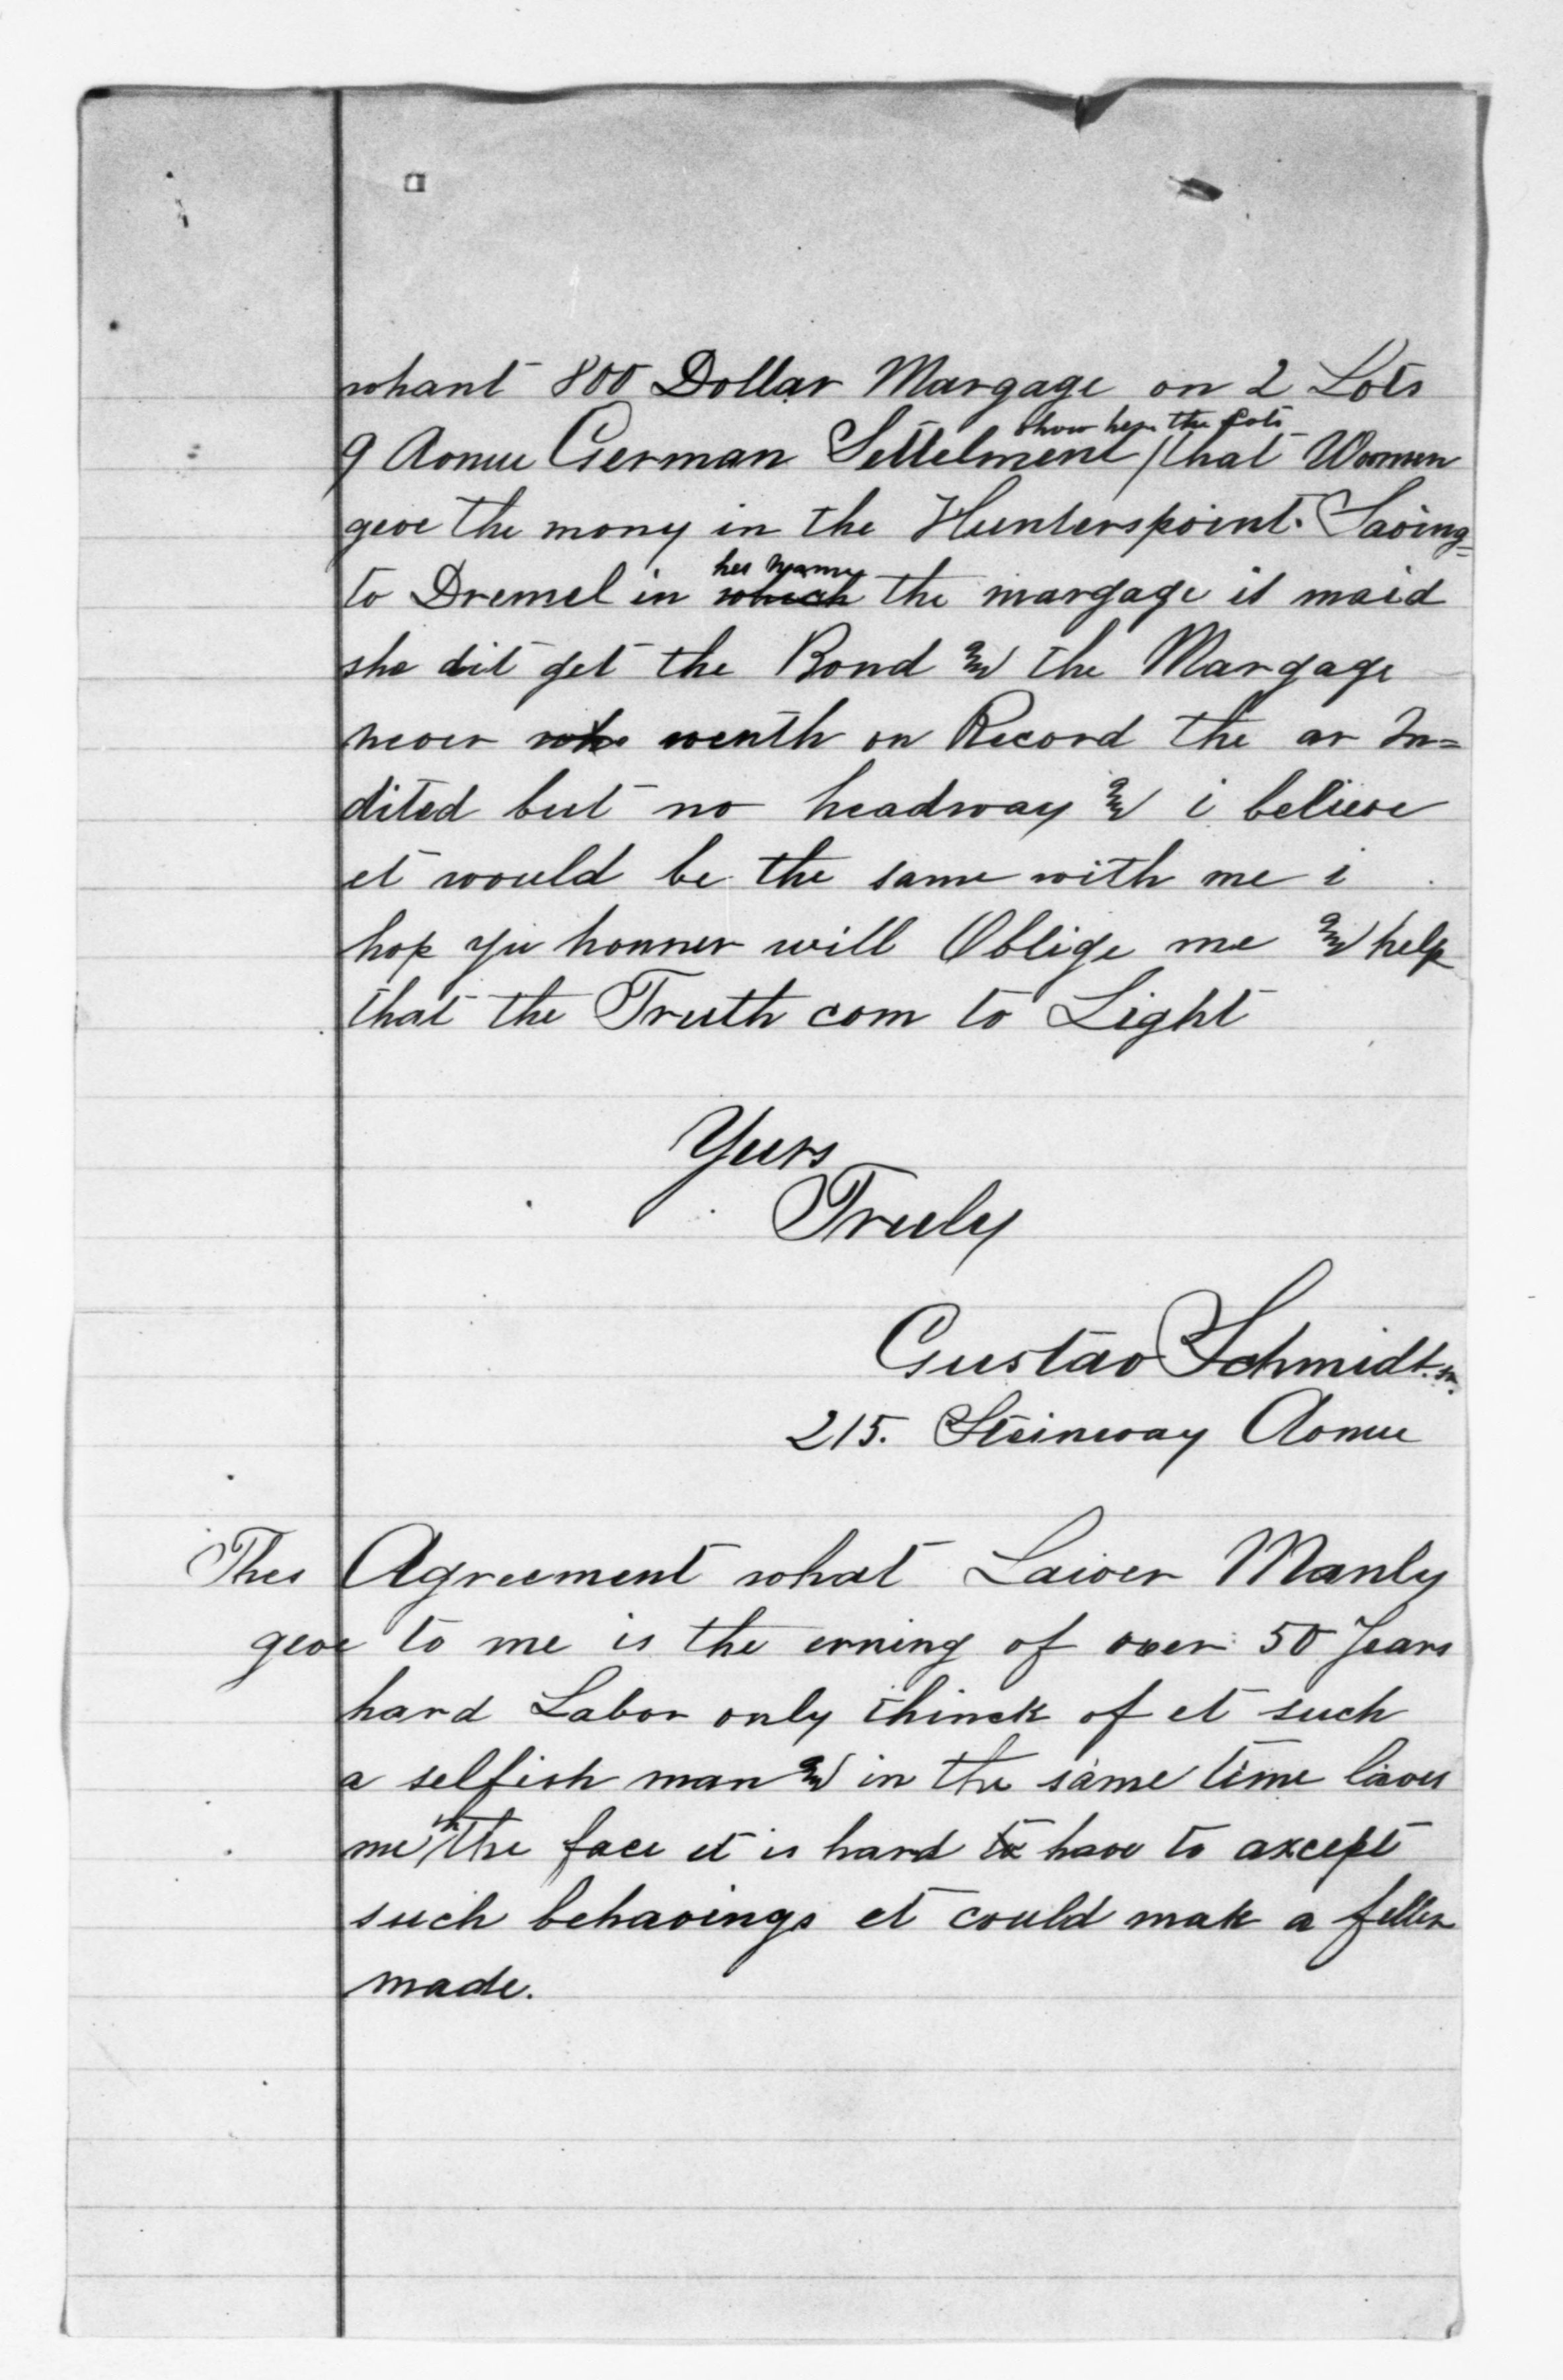 whant 800 Dollar Margage on 2 Lots
show her the Lots
9 Avnue German Settelment / that Women
geve the mony in the Hunterspoint Saving=
her Name
to Dremel in which the margage is maid
she dit get the Bond and the Margage
never wh wenth on Record the ar In=
dited but no headway and i believe
et would be the same with me i
hop yu honner will Oblige me and help
that the Truth com to Light
Yurs
Truly
Gustav Schmidt. sr.
215. Steinway Avnue
Thes Agreement what Laiver Manly
geve to me is the erning of over 50 Jears
hard Labor only thinck of et such
a selfish man and in the same time laves
me in the face et is hard to have to axcept
such behavings et could mak a feller
made.